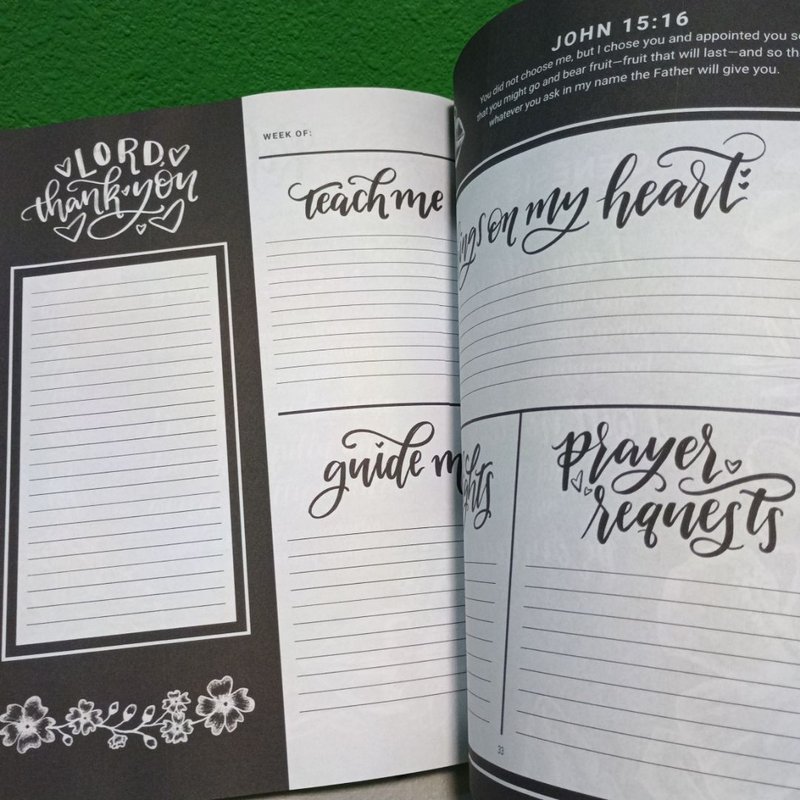 LORD,
thank you
WEEK OF:
teach me
guide m
JOHN 15:16
You did not choose me, but I chose you and appointed you so
that you might go and bear fruit—fruit that will last—and so th
whatever you ask in my name the Father will give you.
ings on my heart:
ghts
prayer
requests
33